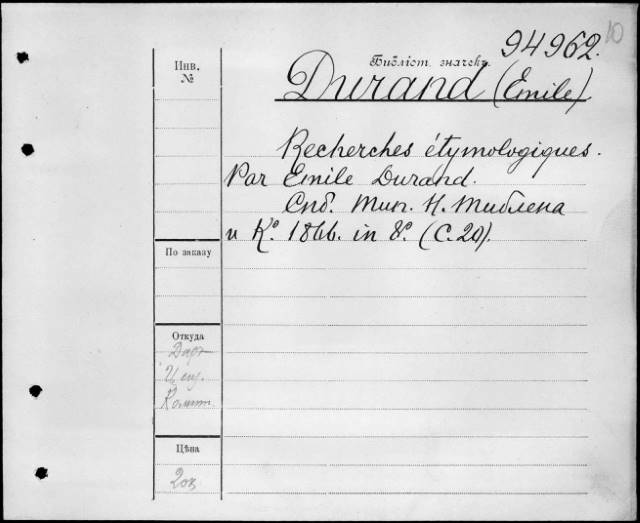 10
94962.
Библіот. значекъ.
Durand (Emile)
Инв.
№
Recherches étymologiques.
Par Emile Durand.
Спб. Тип. Н. Тиблена
и Ко. 1866. in 8o. (С. 20).
По заказу
Откуда
Дар
Ценз.
Комит.
Цѣна